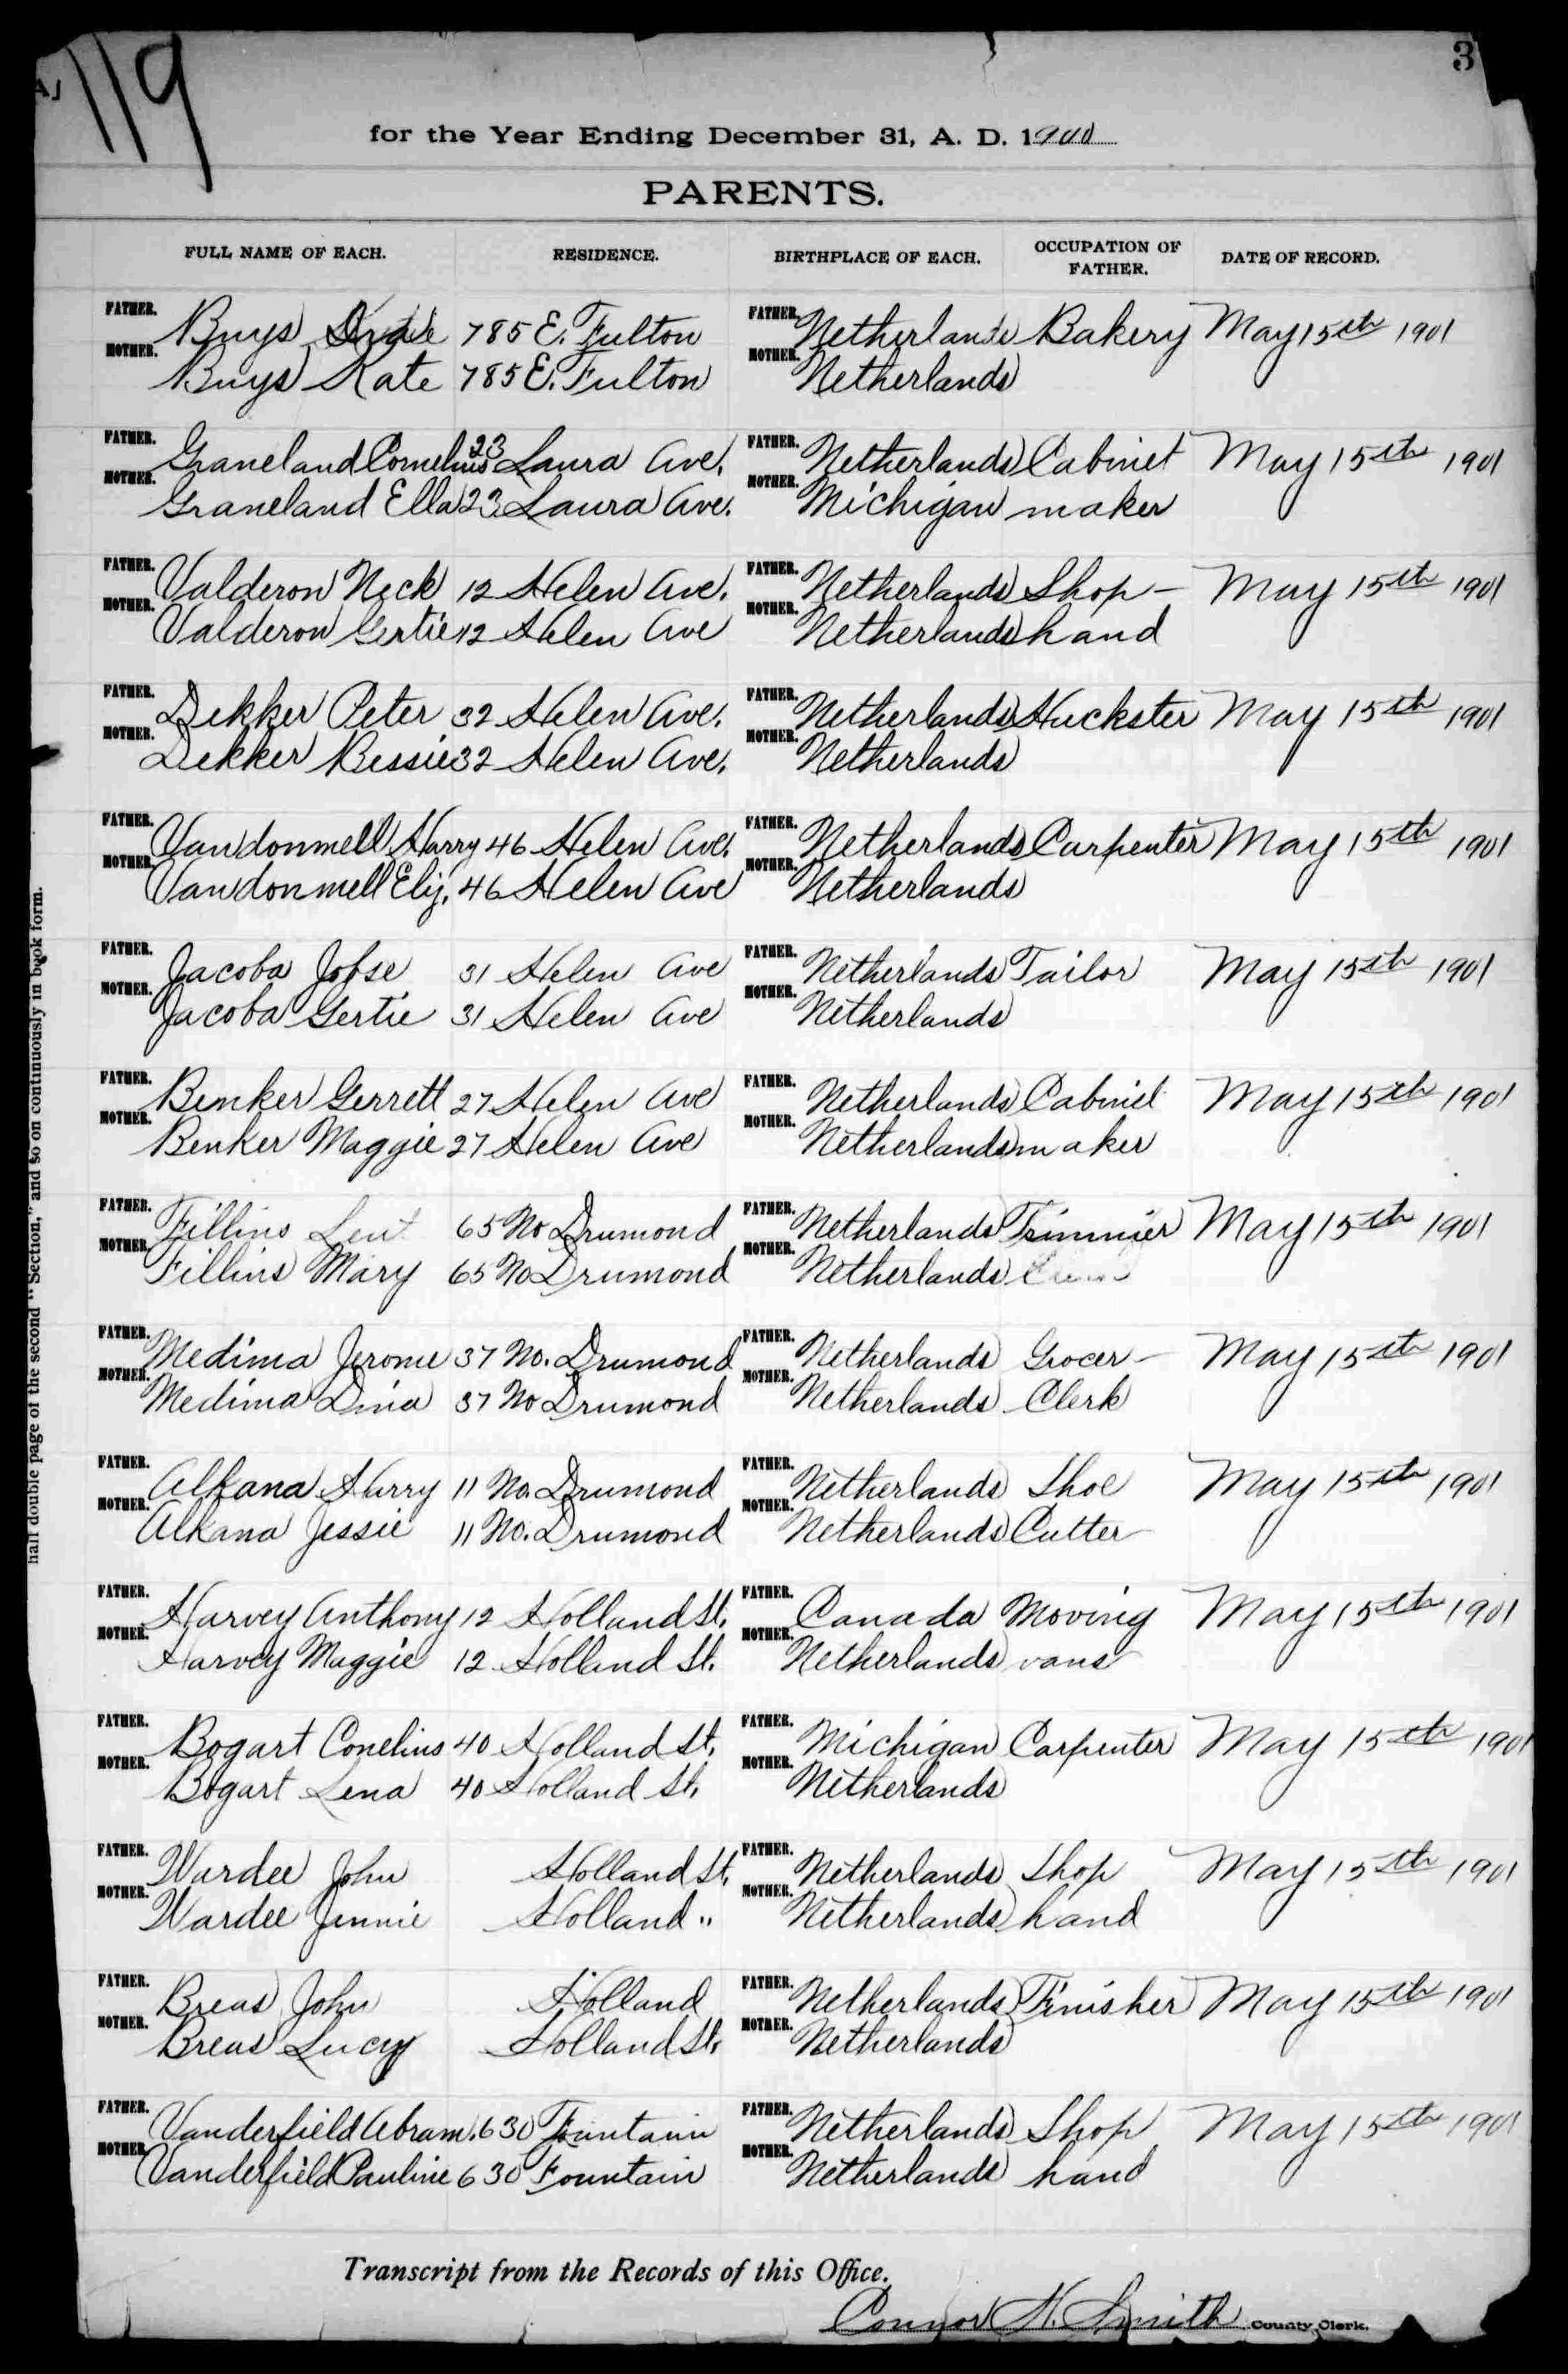 119
3
for the Year Ending December 31, A. D. 1900
PARENTS.
FULL NAME OF EACH. RESIDENCE. BIRTHPLACE OF EACH. OCCUPATION OF FATHER. DATE OF RECORD.
FATHER. Buys 785 E. Fulton FATHER. Netherlands Bakery May 15th 1901
MOTHER. Buys Kate 785 E. Fulton MOTHER. Netherlands
FATHER. Graneland Cornelius 23 Laura Ave. FATHER. Netherlands Cabinet May 15th 1901
MOTHER. Graneland Ella 23 Laura Ave. MOTHER. Michigan maker
FATHER. Valderon Nick 12 Helen Ave. FATHER. Netherlands Shop- May 15th 1901
MOTHER. Valderon Gertie 12 Helen Ave MOTHER. Netherlands hand
FATHER. Dekker Peter 32 Helen Ave. FATHER. Netherlands Huckster May 15th 1901
MOTHER. Dekker Bessie 32 Helen Ave. MOTHER. Netherlands
FATHER. Vandonmell Harry 46 Helen Ave. FATHER. Netherlands Carpenter May 15th 1901
MOTHER. Vandonmell Eliz. 46 Helen Ave MOTHER. Netherlands
FATHER. Jacoba Jobse 31 Helen Ave FATHER. Netherlands Tailor May 15th 1901
MOTHER. Jacoba Gertie 31 Helen Ave MOTHER. Netherlands
FATHER. Benker Gerrett 27 Helen Ave FATHER. Netherlands Cabinet May 15th 1901
MOTHER. Benker Maggie 27 Helen Ave MOTHER. Netherlands maker
FATHER. Fillins 65 No Drumond FATHER. Netherlands Trimmer May 15th 1901
MOTHER. Fillins Mary 65 No Drumond MOTHER. Netherlands
FATHER. Medima Jerome 37 No. Drumond FATHER. Netherlands Grocer- May 15th 1901
MOTHER. Medima Dina 37 No Drumond MOTHER. Netherlands Clerk
FATHER. Alkana Harry 11 No. Drumond FATHER. Netherlands Shoe May 15th 1901
MOTHER. Alkana Jessie 11 No. Drumond MOTHER. Netherlands Cutter
FATHER. Harvey Anthony 12 Holland St. FATHER. Canada Moving May 15th 1901
MOTHER. Harvey Maggie 12 Holland St. MOTHER. Netherlands vans
FATHER. Bogart Conelius 40 Holland St. FATHER. Michigan Carpenter May 15th 1901
MOTHER. Bogart Lena 40 Holland St. MOTHER. Netherlands
FATHER. Wardee John Holland St. FATHER. Netherlands Shop May 15th 1901
MOTHER. Wardee Jennie Holland " MOTHER. Netherlands hand
FATHER. Breas John Holland FATHER. Netherlands Finisher May 15th 1901
MOTHER. Breas Lucy Holland St. MOTHER. Netherlands
FATHER. Vanderfield Abram. 630 Fountain FATHER. Netherlands Shop May 15th 1901
MOTHER. Vanderfield Pauline 630 Fountain MOTHER. Netherlands hand
Transcript from the Records of this Office.
Connor H. Smith County Clerk.
half double page of the second "Section," and so on continuously in book form.